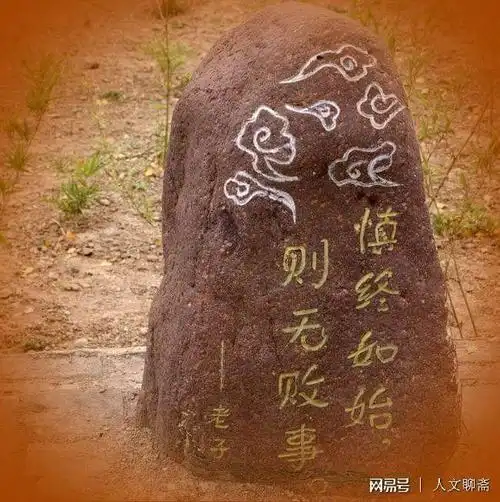 慎终如始，
则无败事
——老子
网易号 | 人文聊斋